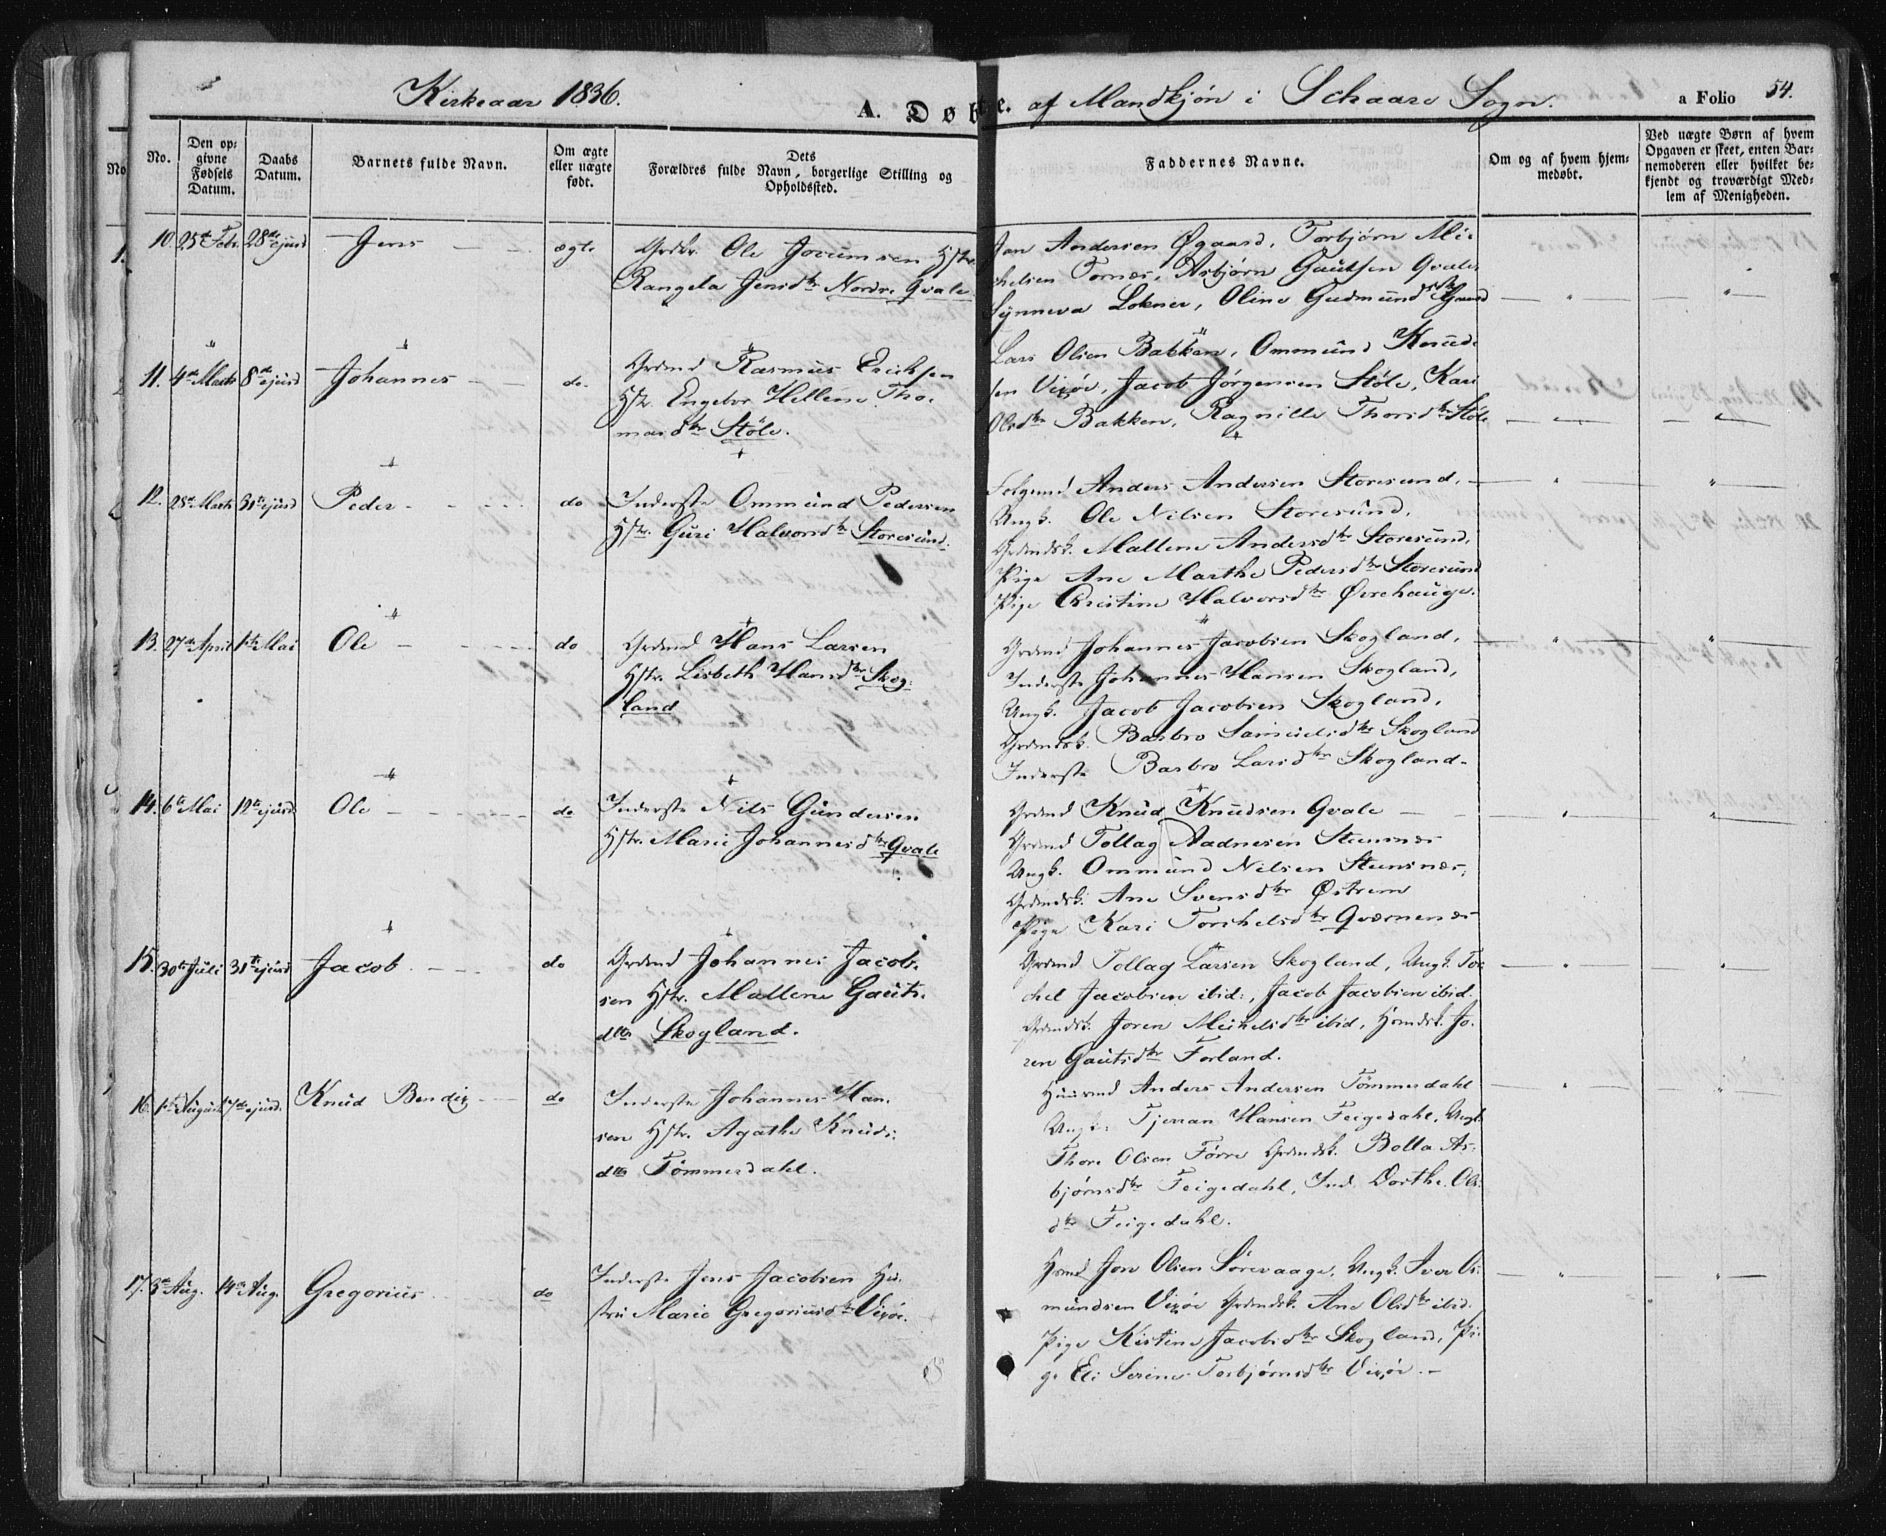 Kirkeaar 1836. A. Døbte. af Mandkjøn i Schaare Sogn. a Folio 54.
No. Den opgivne Fødsels Datum. Daabs Datum. Barnets fulde Navn. Om ægte eller uægte født. Dets Forældres fulde Navn, borgerlige Stilling og Opholdssted. Faddernes Navne. Om og af hvem hjemmedøbt. Ved uægte Børn af hvem Opgaven er skeet, enten Barnemoderen eller hvilket bekjendt og troværdigt Medlem af Menigheden.
10. 25de Febr. 28de ejusd Jens ægte
Ole Jocumsen Hstr.
Rangela Jensdtr Nordre Qvale
Jan Andersen Øgaard, Torbjørn Mi-
chelsen Tornæs, Asbjørn Gautsen Qvale,
Synneva Lokner, Oline Gudmundsdtr
11. 4de Marts 8de ejusd Johannes do.
Grdmd Rasmus Ericksen
Hstr. Engebor Hellene Tho-
masdtr Støle.
Lars Olsen Bakken, Ommund Knud-
sen Vixøe, Jacob Jørgensen Støle, Kari
Olsdtr Bakken, Ragnille Thorsdtr Støle
12. 28de Marts 31te ejusd Peder do
Inderste Ommund Pedersen
Hstr. Guri Halvorsdtr Storesund.
Anders Andersen Storesund,
Ungk. Ole Nilsen Storesund,
Grdmdsk. Mallene Andersdtr Storesund,
Pige Ane Marthe Pedersdtr Storesund
Pige Christine Halvorsdtr Øvrehauge.
13. 27de April 1ste Mai Ole do
Grdmd Hans Larsen
Hstr. Lisbeth Hansdtr Skog-
land
Grdmd Johannes Jacobsen Skogland,
Inderste Johannes Hansen Skogland,
Ungk. Jacob Jacobsen Skogland,
Grdmdsk. Barbro Samuelsdtr Skogland
Inderste Barbro Larsdtr Skogland.
14. 6te Mai 12te ejusd. Ole do
Inderste Nils Gundersen
Hstr. Marie Johannesdtr Qvale
Grdmd Knud Knudsen Qvale
Grdmd Tollag Aadnesen Steensnæs
Ungk. Ommund Nilsen Steensnæs,
Grdmdsk. Ane Svensdtr Østrem
Pige Kari Torchelsdtr Qværnenæs
15. 30te Juli 31te ejusd Jacob do
Grdmd Johannes Jacob-
sen Hstr. Mallene Gauts-
dtr Skogland.
Grdmd Tollag Larsen Skogland, Ungk. Tor-
chel Jacobsen ibid:, Jacob Jacobsen ibid.
Grdmdsk. Joren Michelsdtr ibid, Hsmdsk. Jo-
ren Gautsdtr Forland.
16. 1ste August 7de ejusd. Knud Bendix do
Inderste Johannes Han-
sen Hstr. Agathe Knuds-
dtr Tömmerdahl.
Huusmd Anders Andersen Tömmerdahl
Ungk. Tjeran Hansen Feigedahl, Ungk.
Thore Olsen Förre Grdmdsk. Bolla As-
bjørnsdtr Feigedahl, Ind. Dorthe Ols-
dtr Feigedahl.
17. Aug. 14de Aug. Gregorius do
Inderste Jens Jacobsen Hu-
stru Marie Gregoriusdtr Vixøe.
Hsmd Jon Olsen Sørevaage, Ungk. Iver Os-
mundsen Vixøe Grdmdsk. Ane Olsdtr ibid.
Pige Kirstine Jacobsdtr Skogland, Pi-
ge Eli Serine Torbjørnsdtr Vixøe.